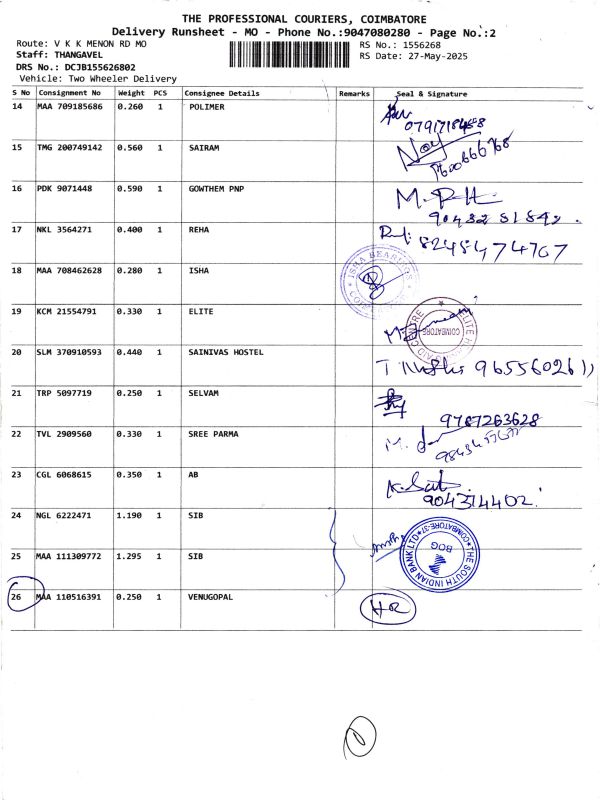 THE PROFESSIONAL COURIERS, COIMBATORE
Delivery Runsheet - MO - Phone No.:9047080280 - Page No.:2
Route: V K K MENON RD MO RS No.: 1556268
Staff: THANGAVEL RS Date: 27-May-2025
DRS No.: DCJB155626802
Vehicle: Two Wheeler Delivery
S No Consignment No Weight PCS Consignee Details Remarks Seal & Signature
14 MAA 709185686 0.260 1 POLIMER
15 TMG 200749142 0.560 1 SAIRAM
16 PDK 9071448 0.590 1 GOWTHEM PNP
90432 51842.
17 NKL 3564271 0.400 1 REHA
8248474707
18 MAA 708462628 0.280 1 ISHA
ISHA BEARINGS
19 KCM 21554791 0.330 1 ELITE
COIMBATORE
20 SLM 370910593 0.440 1 SAINIVAS HOSTEL
9655602611
21 TRP 5097719 0.250 1 SELVAM
9787263628
22 TVL 2909560 0.330 1 SREE PARMA
23 CGL 6068615 0.350 1 AB
904374402
24 NGL 6222471 1.190 1 SIB
THE SOUTH INDIAN BANK LTD COIMBATORE-37
BOG
25 MAA 111309772 1.295 1 SIB
26 MAA 110516391 0.250 1 VENUGOPAL